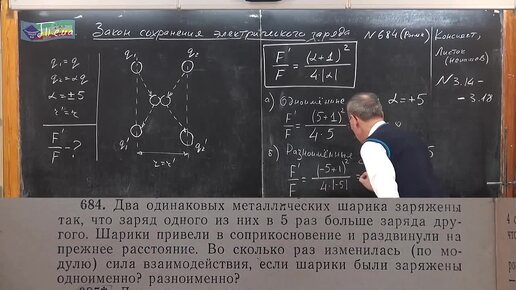 Тема
Закон сохранения электрического заряда
N684 (Рымк)
Конспект,
Листок
N3.14-
- 3.18
q₁ = q
q₂ = αq
α = ±5
r' = r
F'/F - ?
q₁
q₂
q₁'
q₂'
r = r'
F'/F = (α+1)²/4|α|
а) Одноимённые
α = +5
F'/F = (5+1)²/4·5
б) Разноимённые
5
F'/F = (-5+1)²/4·|-5| =
684. Два одинаковых металлических шарика заряжены
так, что заряд одного из них в 5 раз больше заряда дру-
гого. Шарики привели в соприкосновение и раздвинули на
прежнее расстояние. Во сколько раз изменилась (по мо-
дулю) сила взаимодействия, если шарики были заряжены
одноименно? разноименно?